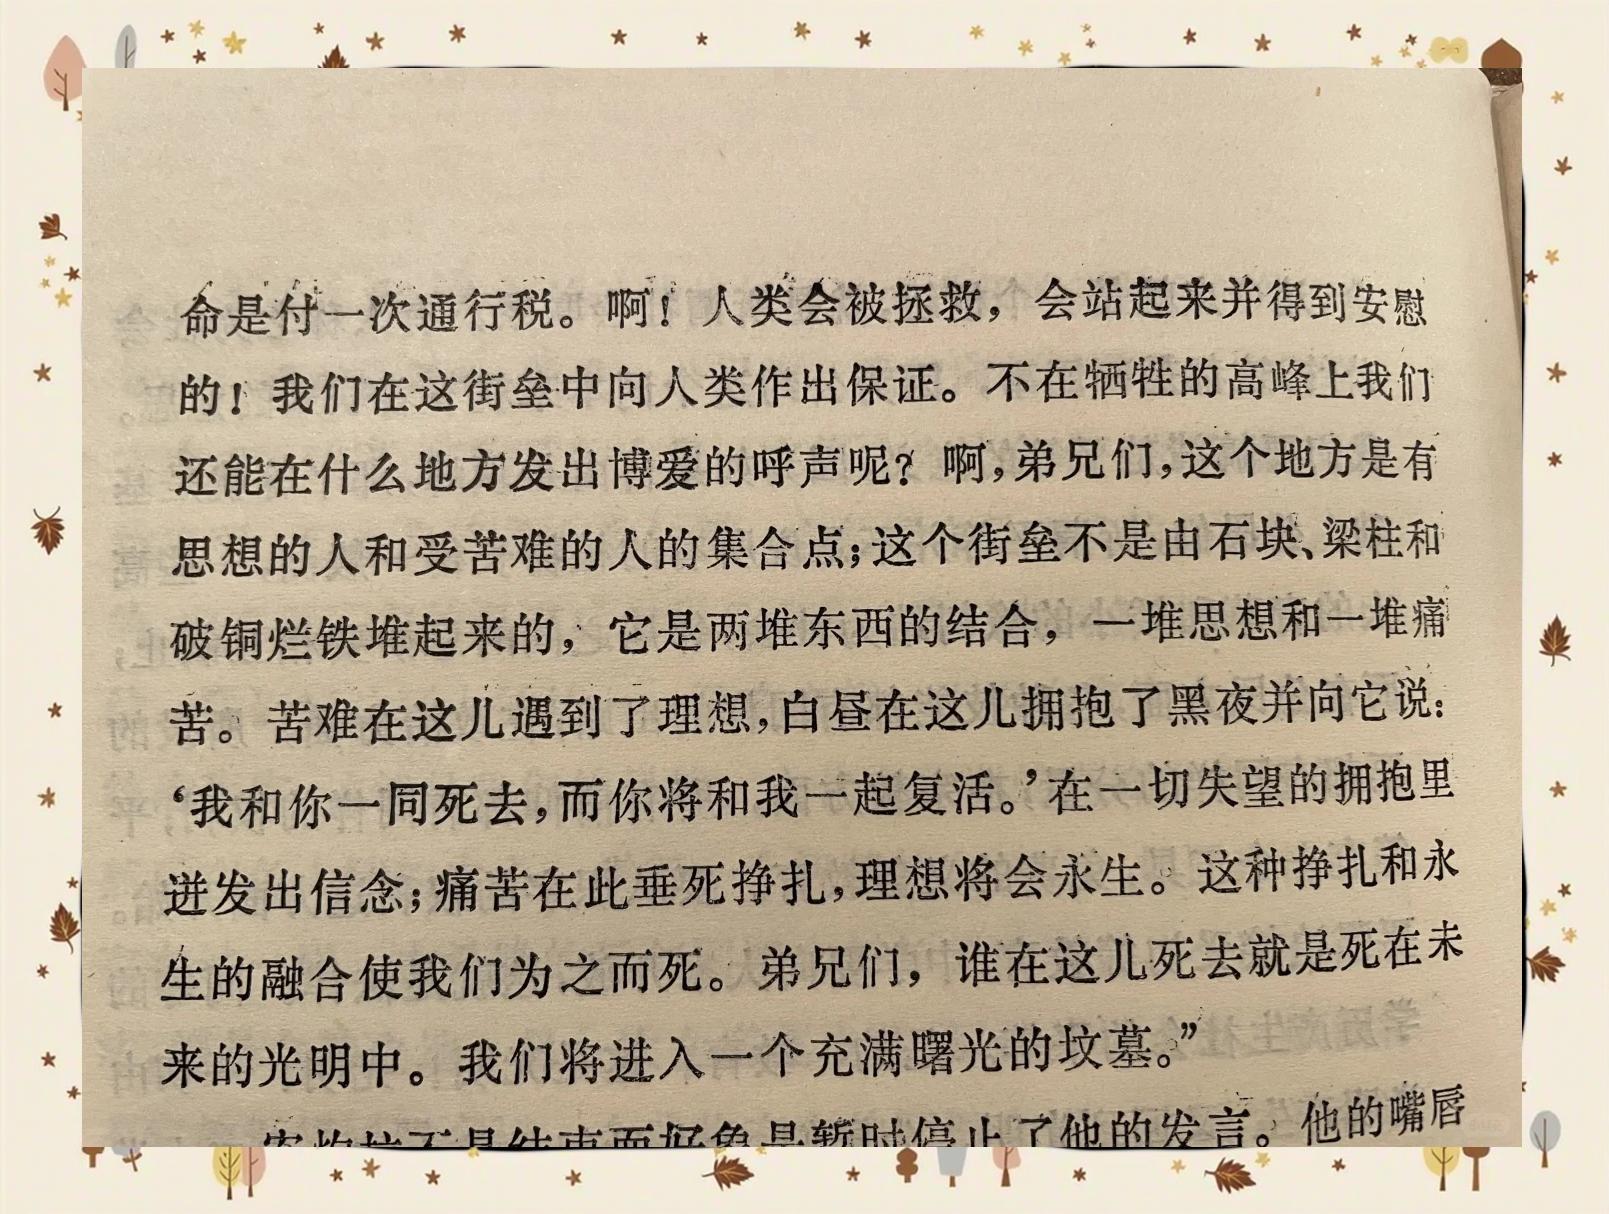 命是付一次通行税。啊！人类会被拯救，会站起来并得到安慰
的！我们在这街垒中向人类作出保证。不在牺牲的高峰上我们
还能在什么地方发出博爱的呼声呢？啊，弟兄们，这个地方是有
思想的人和受苦难的人的集合点；这个街垒不是由石块、梁柱和
破铜烂铁堆起来的，它是两堆东西的结合，一堆思想和一堆痛
苦。苦难在这儿遇到了理想，白昼在这儿拥抱了黑夜并向它说：
‘我和你一同死去，而你将和我一起复活。’在一切失望的拥抱里
迸发出信念；痛苦在此垂死挣扎，理想将会永生。这种挣扎和永
生的融合使我们为之而死。弟兄们，谁在这儿死去就是死在未
来的光明中。我们将进入一个充满曙光的坟墓。”
是结束而好象是暂时停止了他的发言。他的嘴唇